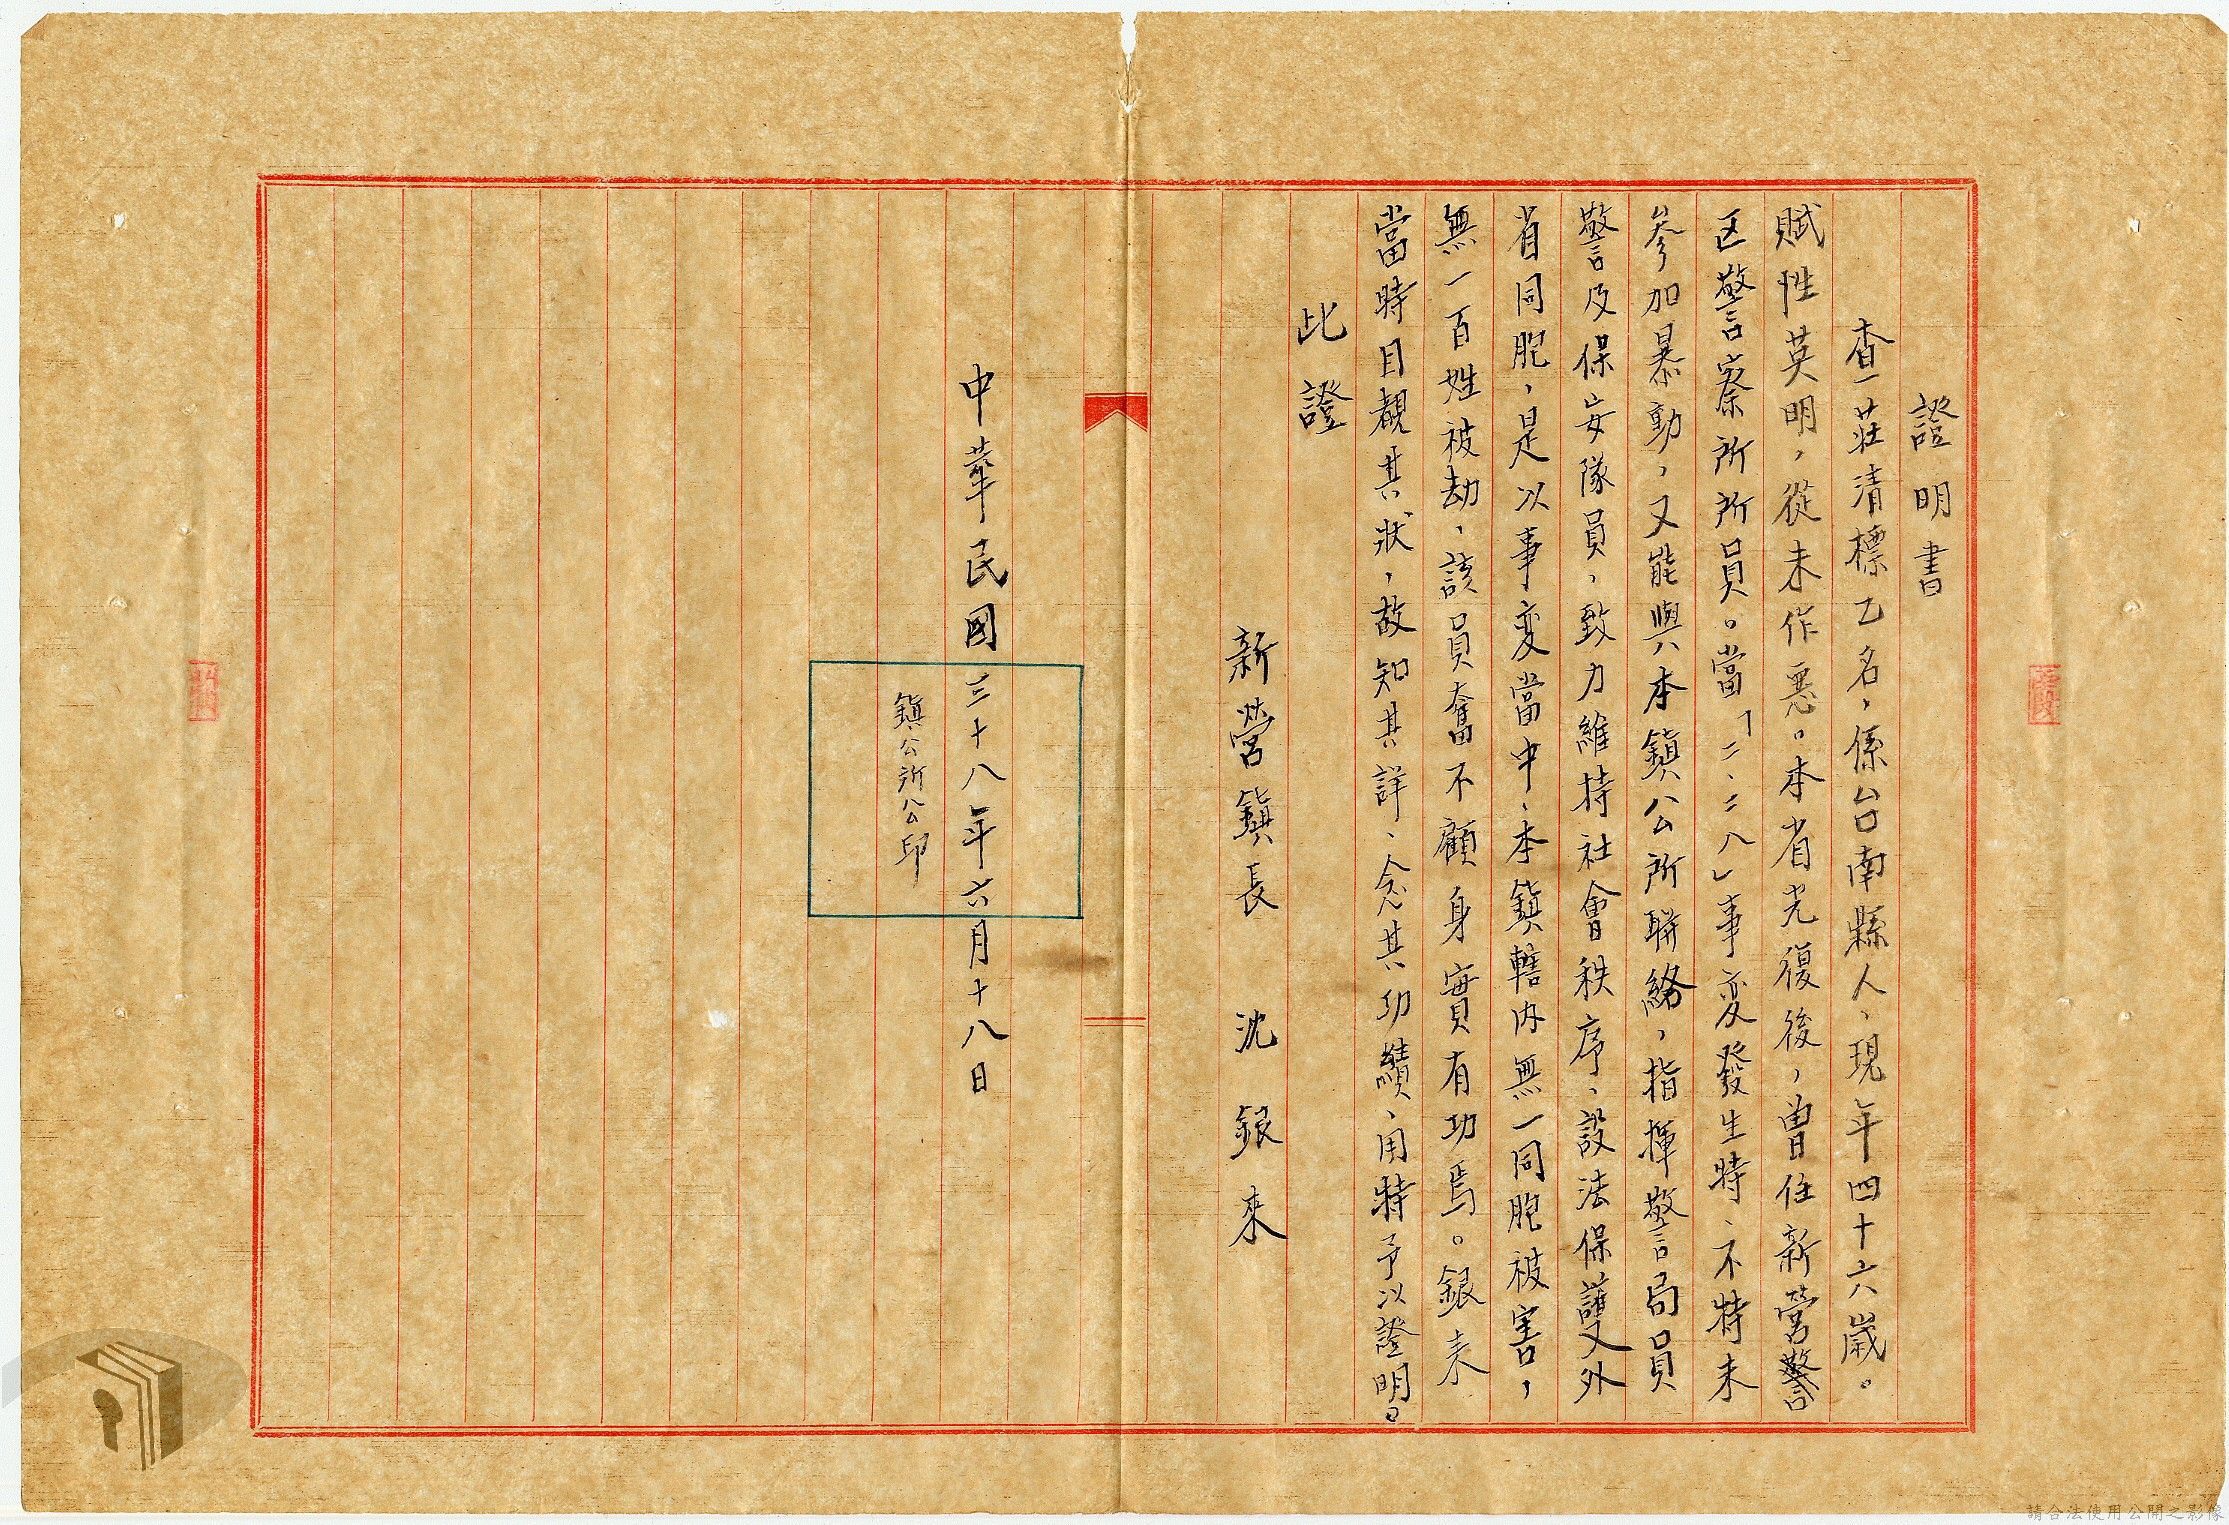 證明書
查一莊清標乙名，係台南縣人、現年四十六歲。
賦性英明，從未作惡。本省光復後，曾任新營警
区警察所所員。當「二、二八」事变發生時、不特未
參加暴動，又能與本鎮公所聯絡，指揮警局員
警及保安隊員，致力維持社會秩序、設法保護外
省同胞，是以事变當中、本鎮轄内無一同胞被害，
無一百姓被劫、該員奮不顧身實有功焉。銀来
當時目覩其狀，故知其詳、念其功績、用特予以證明。
此證
新營鎮長 沈銀來
中華民國三十八年六月十八日
鎮公所公印
請合法使用公開之影像